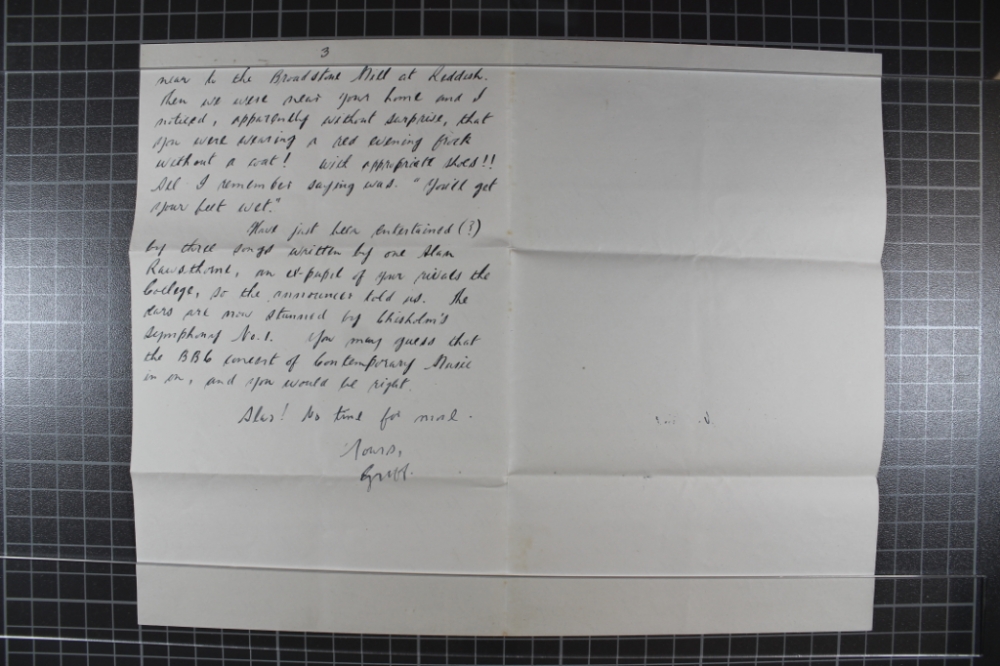 3
near to the Broadstone Mill at Reddish.
Then we were near your home and I
noticed, apparently without surprise, that
you were wearing a red evening frock
without a coat! with appropriate shoes!!
All I remember saying was. "You'll get
your feet wet."
Have just been entertained (?)
by three songs written by one Alan
Rawsthorne, an ex-pupil of your rivals the
College, so the announcer told us. The
ears are now stunned by Chisholm's
Symphony No. 1. You may guess that
the BBC concert of Contemporary Music
is on, and you would be right.
Alas! No time for more.
Yours,